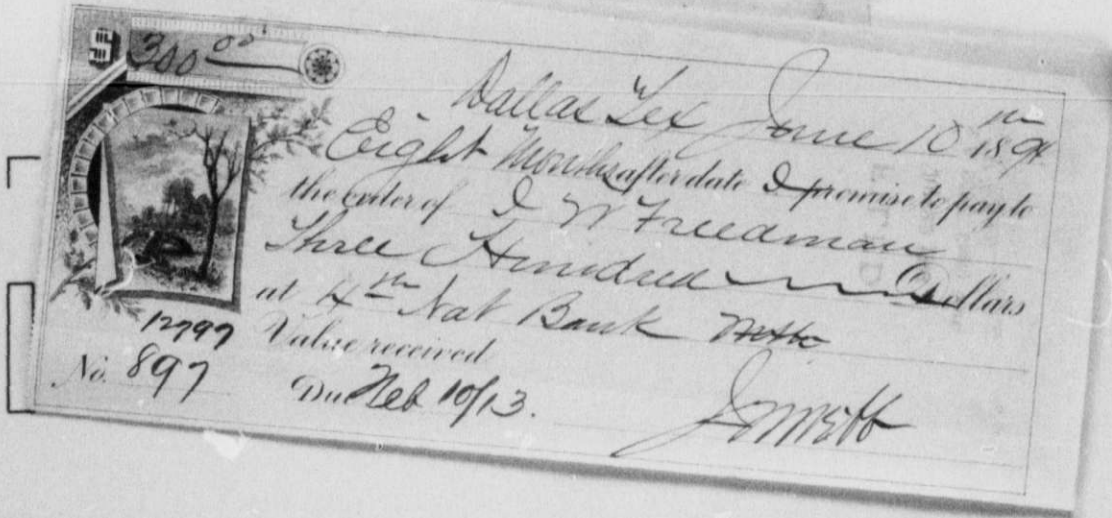 $ 300 00
Dallas Tex June 10 th 189
Eight Months after date I promise to pay to
the order of I W Freedman
Three Hundred Dollars
at 4th Nat Bank
12797 Value received
No. 897 Due Feb 10/13.